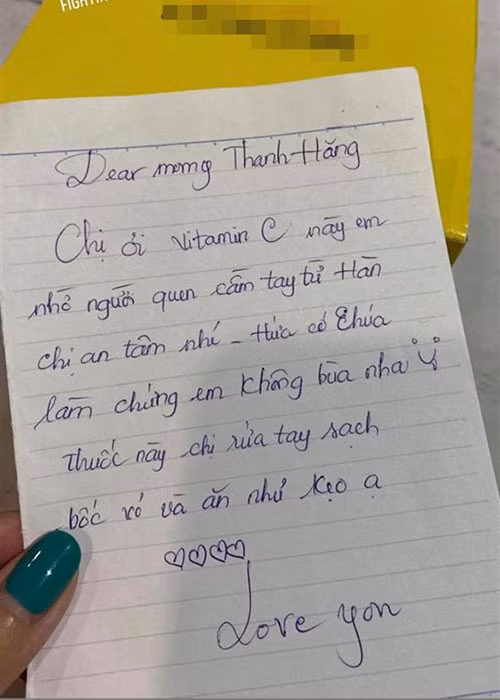 FIGHTIN
Dear mơmg Thanh Hằng
Chị ơi Vitamin C này em
nhờ người quen cầm tay từ Hàn
chị an tâm nhí - Hứa có Chúa
làm chứng em không bùa nha
Thuốc này chị rửa tay sạch
bốc vó và ăn như kẹo ạ
Love you